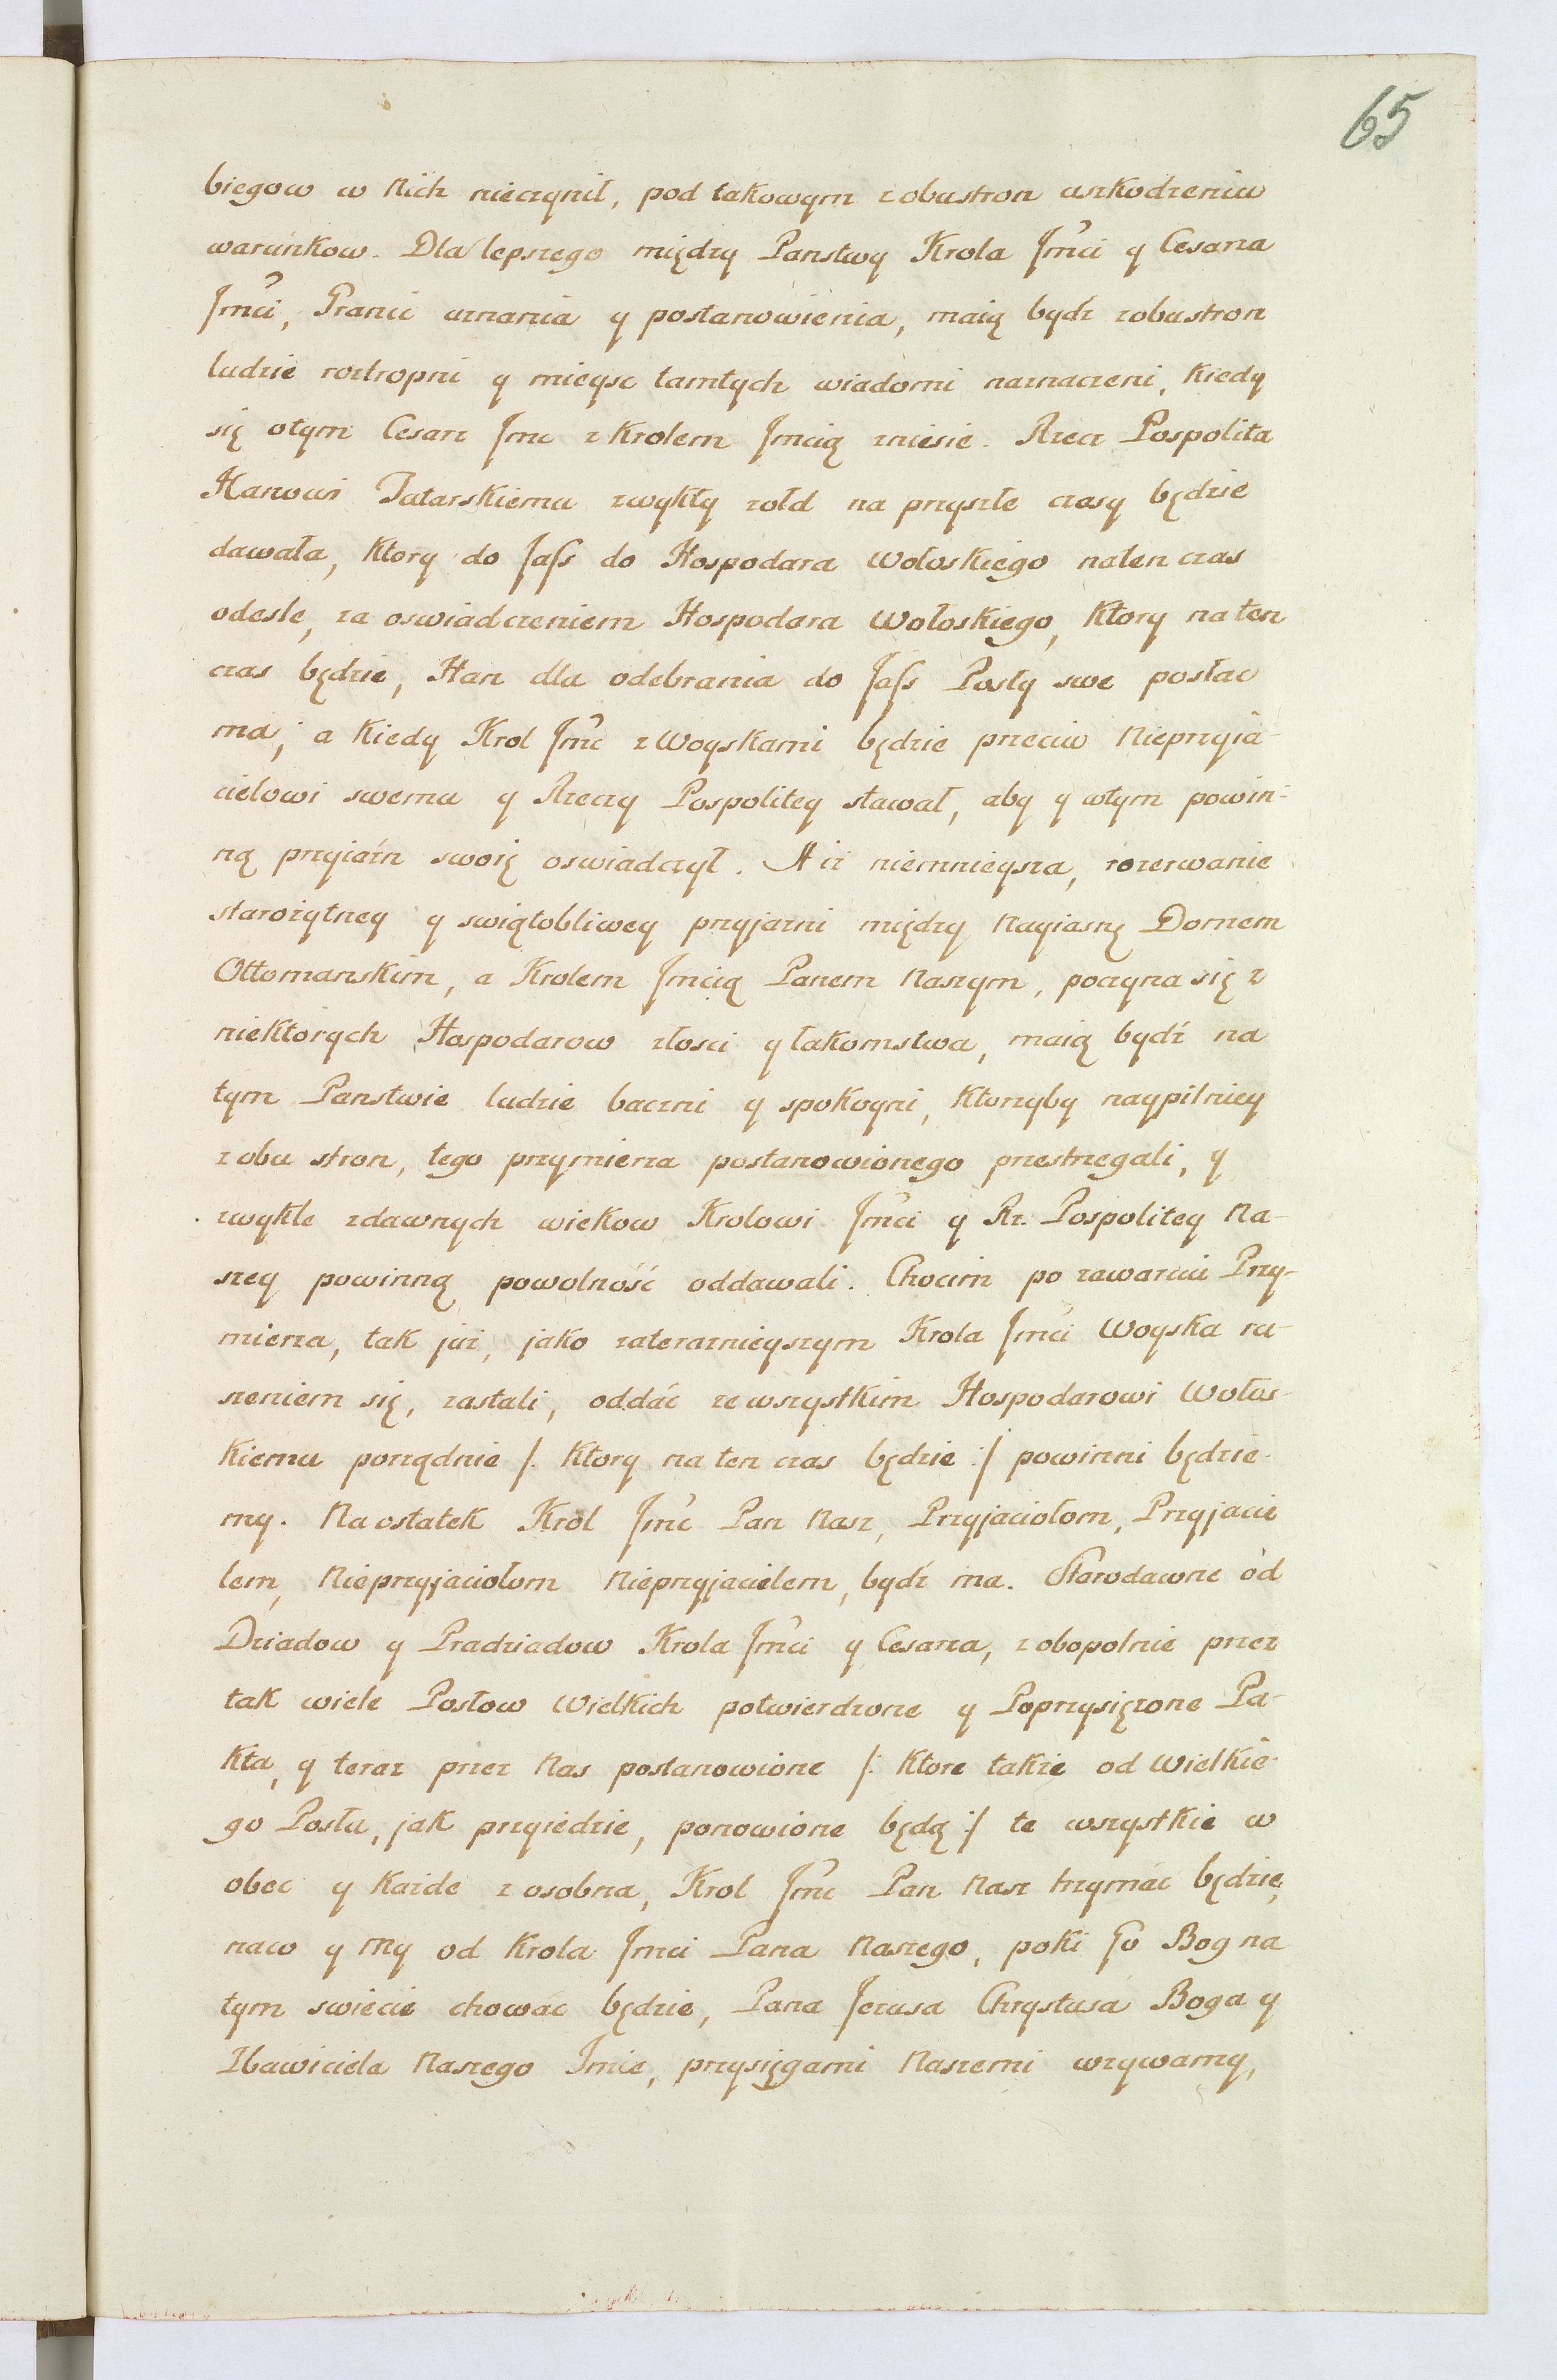 65
biegow w Nich nieczynił, pod takowym z obustron uszkodzeniu
warunkow. Dla lepszego między Panstwy Krola Jmci y Cesarza
Jmci, Granic uznania y postanowienia, maią bydz zobustron
ludzie roztropni y mieysc tamtych wiadomi naznaczeni, Kiedy
się otym Cesarz Jmc z Krolem Jmcią zniesie. Rzecz Pospolita
Hanowi Tatarskiemu zwykły zołd na przyszłe czasy będzie
dawała, Ktory do Jass do Hospodara Wołoskiego naten czas
odesle, za oswiadczeniem Hospodara Wołoskiego, Ktory na ten
czas będzie, Han dla odebrania do Jass Posły swe posłac
ma; a Kiedy Krol Jmc z Woyskami będzie przeciw Nieprzyia-
cielowi swemu y Rzeczy Pospolitey stawał, aby y wtym powin-
ną przyiaźn swoię oswiadczył. A iż niemnieysza, rozerwanie
starożytney y swiątobliwey przyjazni między Nayiasnę Domem
Ottomanskim, a Krolem Jmcią Panem Naszym, poczyna się z
niektorych Hospodarow złosci y łakomstwa, maią bydź na
tym Panstwie ludzie baczni y spokoyni, Ktorzyby naypilniey
z obu stron, tego przymierza postanowionego przestrzegali, y
zwykłe zdawnych wiekow Krolowi Jmci y Rz. Pospolitey Na-
szey powinną powolność oddawali. Chocim po zawarciu Przy-
mierza, tak już, jako zaterażnieyszym Krola Jmci Woyska ru-
szeniem się, zastali, oddać ze wszystkim Hospodarowi Wołos-
Kiemu porządnie /: Ktory na ten czas będzie :/ powinni będzie-
my. Na ostatek Król Jmć Pan Nasz, Przyjaciołom, Przyjacie
lem, Nieprzyjaciołom Nieprzyjacielem, bydź ma. Starodawne od
Dziadow y Pradziadow Krola Jmci y Cesarza, z obopolnie przez
tak wiele Posłow Wielkich potwierdzone y Poprzysiężone Pa-
Kta, y teraz przez Nas postanowione /: Ktore także od Wielkie-
go Posła, jak przyiedzie, ponowione będą :/ te wszystkie w
obec y Każde z osobna, Krol Jmc Pan Nasz trzymać będzie,
naco y My od Krola Jmci Pana Naszego, poki Go Bog na
tym swiecie chować będzie, Pana Jezusa Chrystusa Boga y
Zbawiciela Naszego Imie, przysięgami Naszemi wzywamy,